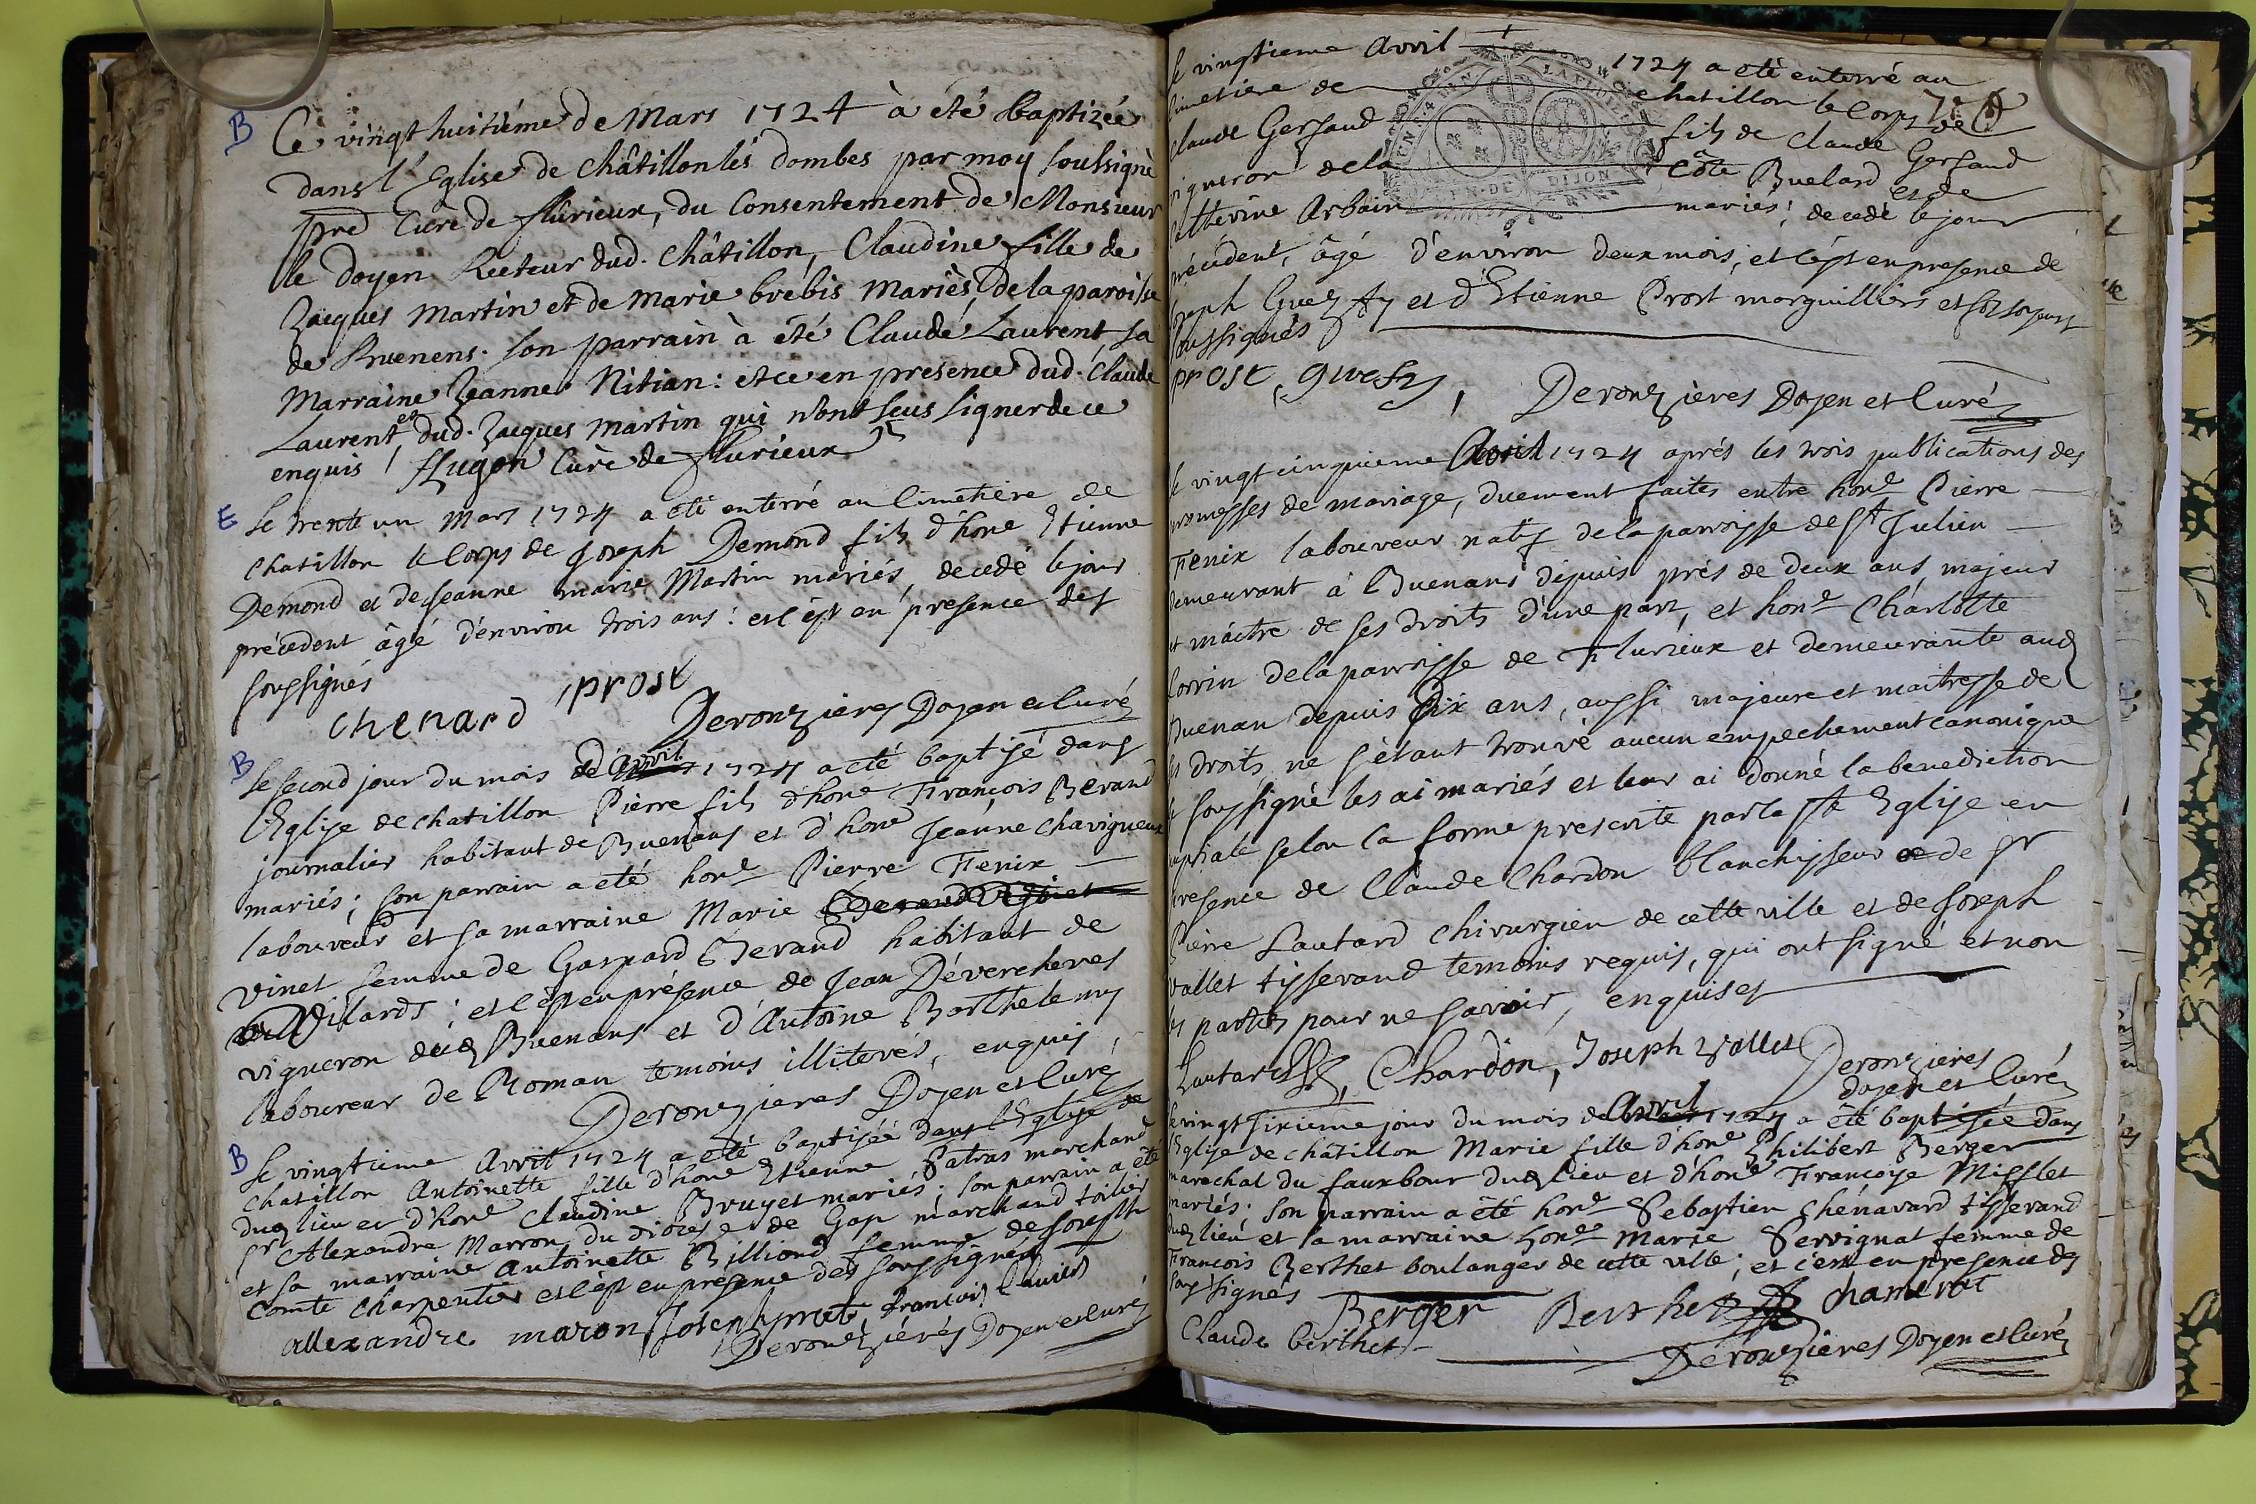 B Ce vingt huitiéme de Mars 1724 à été baptizée
dans l'Eglise de châtillon lés dombes par moy soussigné
pre Curé de flurieux, du Consentement de Monsieur
le doyen Recteur dud. Châtillon, Claudine fille de
Jacques Martin et de Marie brebis mariés de la paroisse
de Buenens. son parrain à été Claude Laurent sa
Marraine Jeanne Nitian: et ce en présence dud. Claude
Laurent et dud. Jacques Martin qui n'ont sçus signer de ce
enquis / flugon Curé de flurieux
E Le trente un Mars 1724 a été enterré au Cimetiére de
chatillon le Corps de Joseph Demond fils d'hone Etienne
Demond et de Jeanne marie Martin mariés, decedé le jour
précedent âgé d'environ trois ans: et c'est en presence des
soussignés
chenard prost
Deronzieres Doyen et Curé
B Le second jour du mois de avril 1724 a été baptisé dans
l'Eglise de chatillon Pierre fils d'hone François Beraud
journalier habitant de Buenans et d'hone Jeanne chavigneux
mariés; son parrain a été hone Pierre Fenix
laboureur et sa marraine Marie
Vinet femme de Gaspard Beraud habitant de
Vilards; et c'est en présence de Jean Dévercheres
vigneron dud Buenans et d'Antoine Barthelemy
laboureur de Roman temoins illiterés, enquis,
Deronzieres Doyen et Curé
B Le vingtieme Avril 1724 a été baptisée dans l'Eglise de
chatillon Antoinette fille d'hone Etienne Patras marchand
dud lieu et d'hone Claudine Bruyet mariés; son parrain a été
sr Alexandre Marron du diocese de Gap marchand toilier
et sa marraine Antoinette Billiond femme de Joseph
Comte charpentier et c'est en présence des soussignés
allexandre maron Joseph françois
Deronziéres Doyen et Curé
Le vingtieme Avril 1724 a été enterré au
Cimetiere de chatillon le Corps de
Claude Gersaud fils de Claude Gersaud
vigneron de la Côte Buelard et de
Catherine Arbain mariés; decedé le jour
précédent, âgé d'environ deux mois; et c'est en presence de
Joseph et d'Etienne Prost marguilliers
soussignés
prost,
Deronzières Doyen et Curé
Le vingt cinquieme Avril 1724 aprés les trois publications des
promesses de mariage, duement faites entre hone Pierre
Fenix laboureur natif de la parroisse de St Julien
demeurant à Buenans dépuis prés de deux ans, majeur
et maitre de ses droits d'une part, et hone Charlotte
Corrin de la parroisse de Flurieux et demeurante aud
Buenan depuis dix ans, aussi majeure et maitresse de
ses droits, ne s'étant trouvé aucun empechement canonique
je soussigné les ai mariés et leur ai donné la benediction
nuptiale selon la forme prescrite par la Ste Eglise en
presence de Claude Chardon blanchisseur de sr
Pierre Lautard chirurgien de cette ville et de Joseph
Vallet tisserand temoins requis, qui ont signé et non
les parties pour ne savoir, enquises
Lautard, Chardon, Joseph vallet
Deronzieres
Doyen et Curé
Le vingt sixieme jour du mois de avril 1724 a été baptisée dans
l'Eglise de châtillon Marie fille d'hone Philibert Berger
marechal du fauxbour dud lieu et d'hone Françoise Mifflet
mariés. son parrain a été hone Sebastien chénavard tisserand
dud lieu et sa marraine hone Marie Servignat femme de
François Berthet boulanger de cette ville; et c'est en presence des
soussignés
Berger Berthet chamerat
Claude berthet
Deronzieres Doyen et Curé